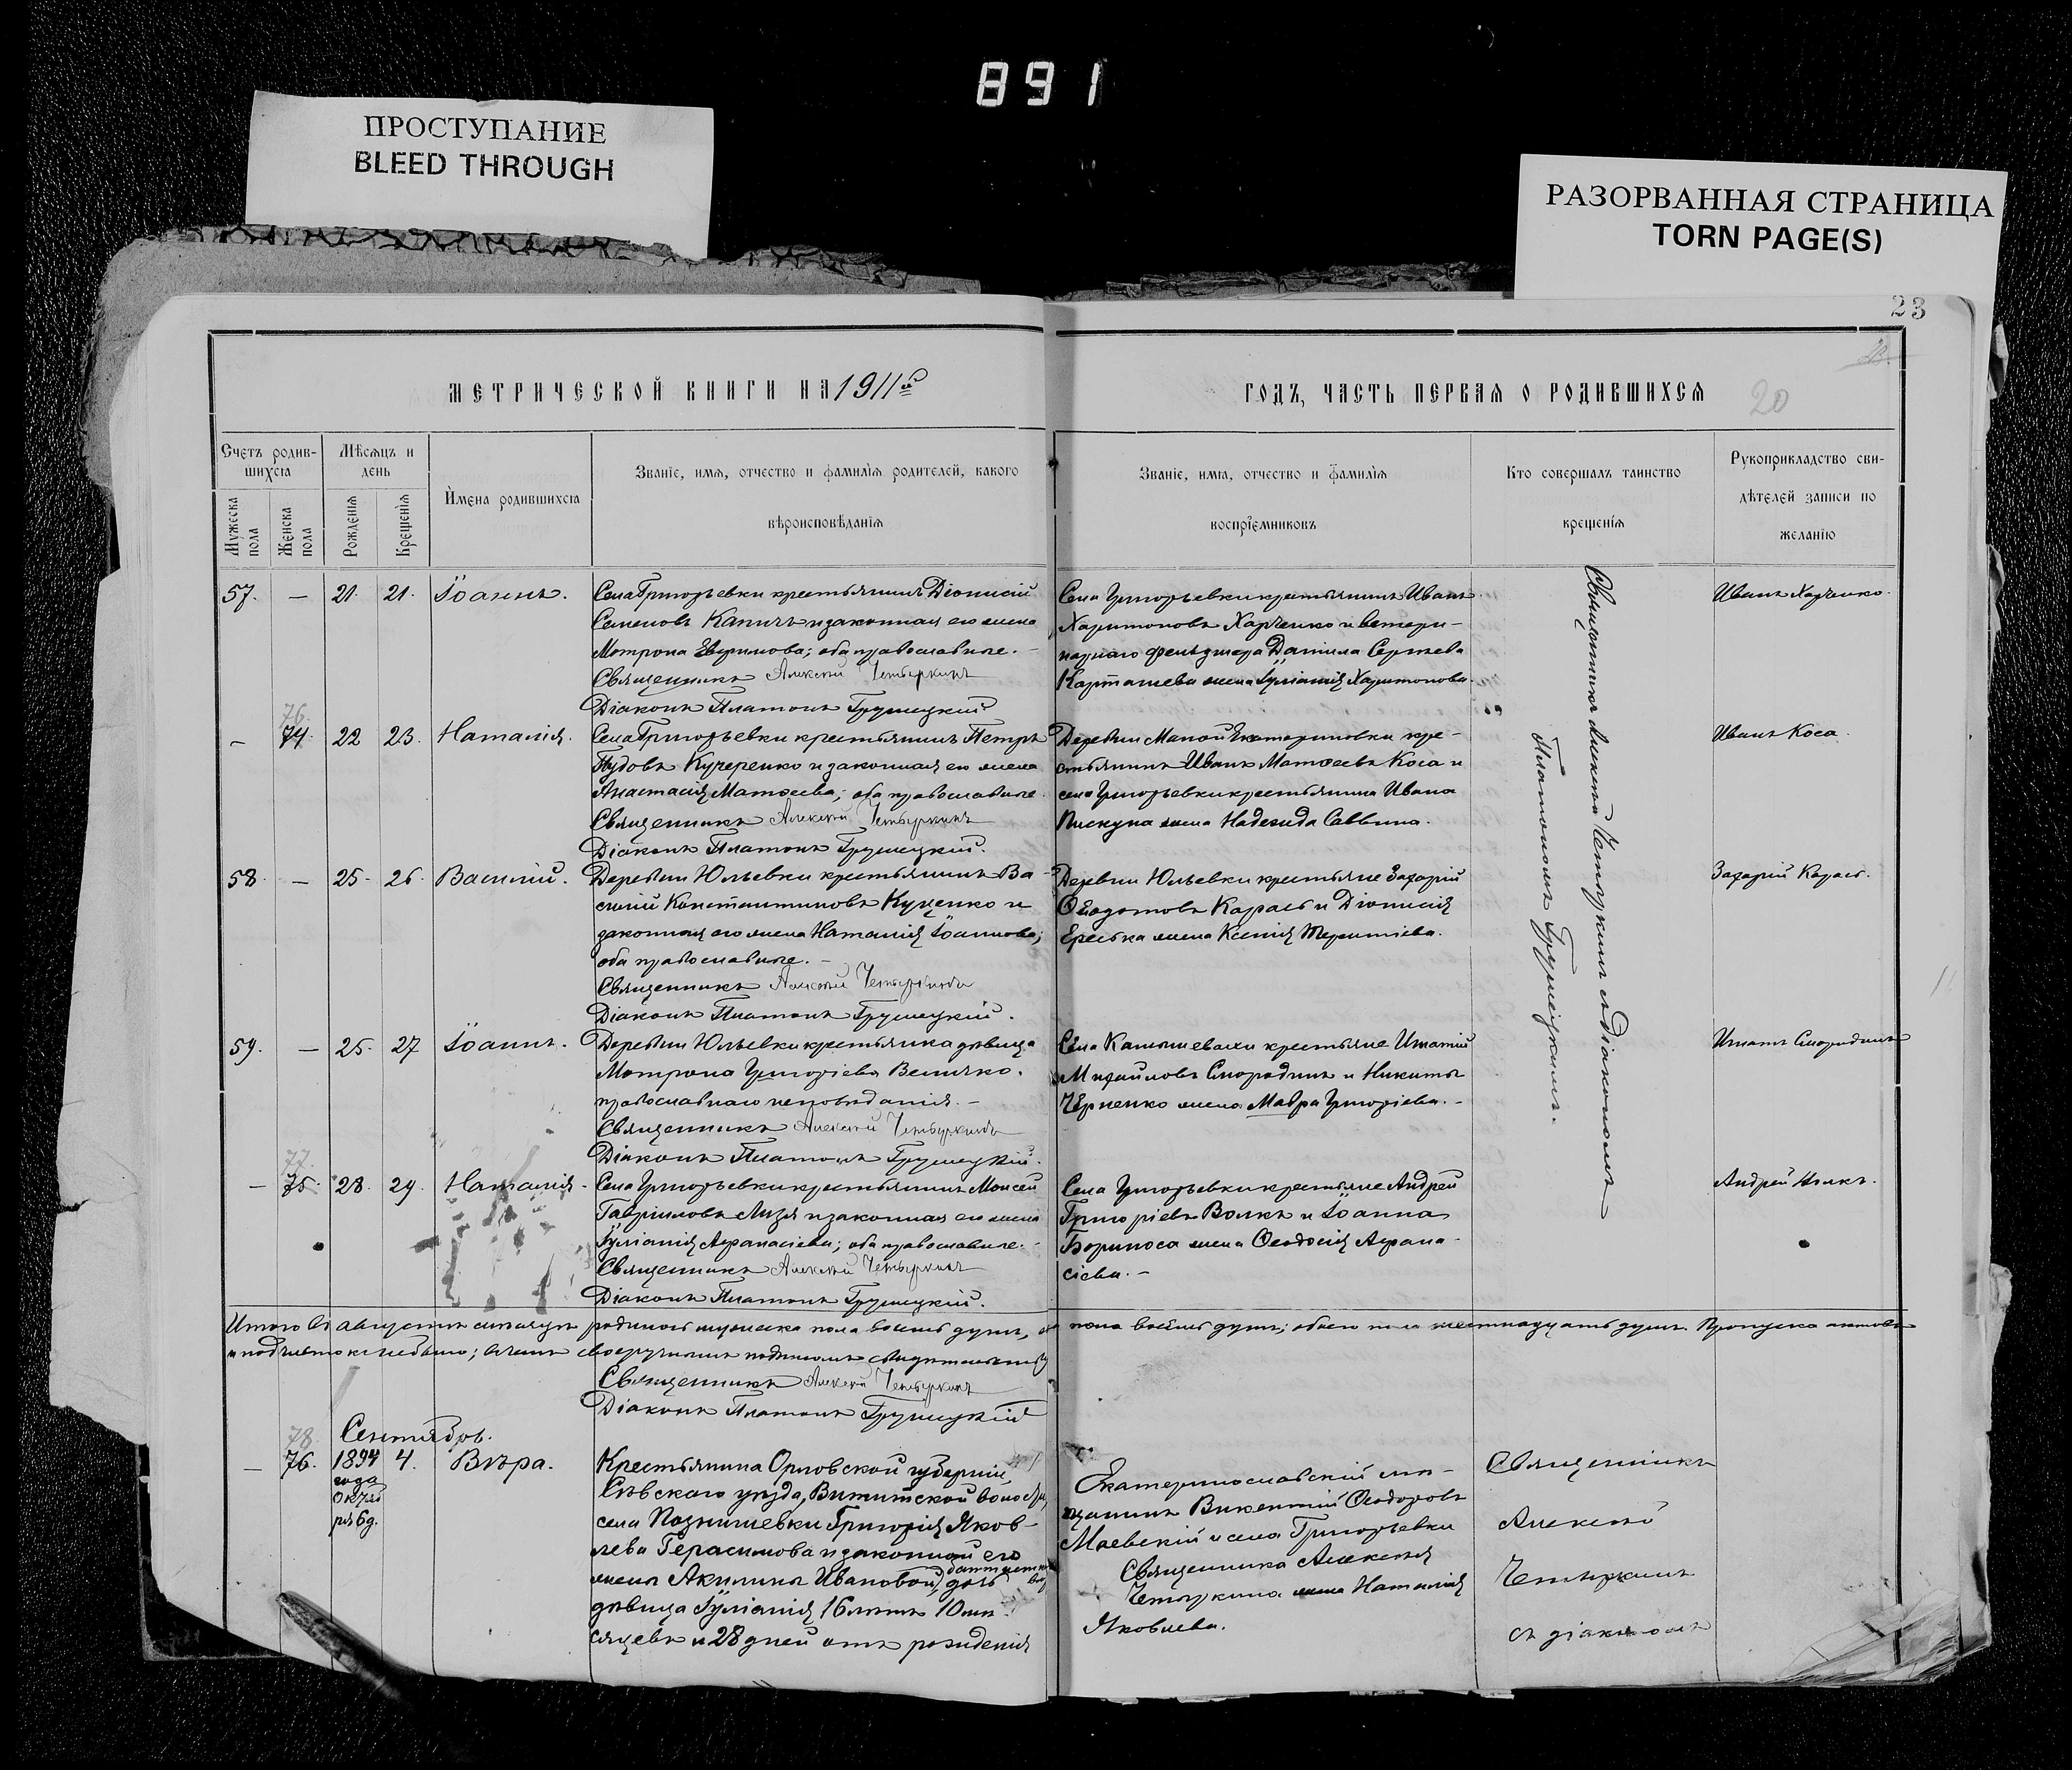 891
ПРОСТУПАНИЕ
BLEED THROUGH
РАЗОРВАННАЯ СТРАНИЦА
TORN PAGE(S)
23
20
МЕТРИЧЕСКОЙ КНИГИ НА 1911й
ГОДЪ, ЧАСТЬ ПЕРВАЯ О РОДИВШИХСЯ
Счетъ родив-
шихся
Мужеска
пола
Женска
пола
Мѣсяцъ и
день
Рожденія
Крещенія
Имена родившихся
Званіе, имя, отчество и фамилія родителей, какого
вѣроисповѣданія
Званіе, имя, отчество и фамилія
воспріемниковъ
Кто совершалъ таинство
крещенія
Рукоприкладство сви-
дѣтелей записи по
желанію
57. — 21. 21. Іоаннъ.
Села Григорьевки крестьянинъ Діонисій
Семеновъ Капичъ и законная его жена
Мотрона Евфимова; оба православные.
Священникъ Алексій Четыркинъ
Діаконъ Платонъ Грушецкій
Села Григорьевки крестьянинъ Иванъ
Харитоновъ Харченко и ветери-
нарнаго фельдшера Даніила Сергѣева
Карташева жена Іуліанія Харитонова.
Иванъ Харченко.
76.
— 74. 22 23. Наталія.
Села Григорьевки крестьянинъ Петръ
Кучеренко и законная его жена
Анастасія Матѳеева; оба православные.
Священникъ Алексій Четыркинъ
Діаконъ Платонъ Грушецкій.
Деревни Малой Екатериновки кре-
стьянинъ Иванъ Матѳеевъ Коса и
села Григорьевки крестьянина Ивана
Пискуна жена Надежда Саввина.
Иванъ Коса.
58. — 25. 26. Василій.
Деревни Юльевки крестьянинъ Ва-
силій Константиновъ Куценко и
законная его жена Наталія Іоаннова;
оба православные. —
Священникъ Алексій Четыркинъ
Діаконъ Платонъ Грушецкій.
Деревни Юльевки крестьяне Захарій
Ѳеодотовъ Карась и Діонисія
жена Ксенія Терентіева.
Захарій Карась.
59. — 25. 27 Іоаннъ.
Деревни Юльевки крестьянка дѣвица
Мотрона Григоріева Величко.
православнаго исповѣданія. —
Священникъ Алексій Четыркинъ
Діаконъ Платонъ Грушецкій.
Села Камышевахи крестьяне Игнатій
Михайловъ Смородинъ и Никиты
Черненко жена Мавра Григоріева. —
Игнатъ Смородинъ
77.
— 75. 28. 29. Наталія.
Села Григорьевки крестьянинъ Моисей
Гавріиловъ и законная его жена
Іуліанія Аѳанасіева; оба православные. —
Священникъ Алексій Четыркинъ
Діаконъ Платонъ Грушецкій.
Села Григорьевки крестьяне Андрей
Григоріевъ Волкъ и Іоанна
жена Ѳеодосія Аѳана-
сіева. —
Андрей
Священникъ Алексій Четыркинъ съ діакономъ
Платономъ Грушецкимъ.
Итого въ августѣ мѣсяцѣ родилось мужеска пола восемь душъ, пола восемь душъ; обоего пола шестнадцать душъ. Пропуска актовъ
и подчистокъ не было; въ чемъ своеручнымъ подписомъ
Священникъ Алексій Четыркинъ
Діаконъ Платонъ Грушецкій
Сентябрь.
78.
— 76. 1894 4. Вѣра.
года
октяб
ря 6 д.
Крестьянина Орловской губерніи,
Сѣвскаго уѣзда, волости,
села Григорія Яков-
лева Герасимова и законной его
жены Акилины Ивановой, дочь
дѣвица Іуліанія 16 лѣтъ 10 мѣ-
сяцевъ и 28 дней отъ рожденія
Екатеринославскій мѣ-
щанинъ Викентій Ѳеодоровъ
Маевскій и села Григорьевки
Священника Алексія
Четыркина жена Наталія
Яковлева.
Священникъ
Алексій
Четыркинъ
съ діакономъ